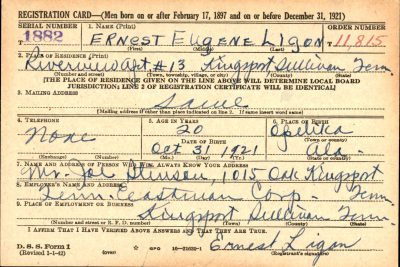 REGISTRATION CARD—(Men born on or after February 17, 1897 and on or before December 31, 1921)
SERIAL NUMBER 1. NAME (Print) ORDER NUMBER
1882 ERNEST EUGENE LIGON T 11,815
(First) (Middle) (Last)
2. PLACE OF RESIDENCE (Print)
Riverview Apt #13 Kingsport Sullivan Tenn
(Number and street) (Town, township, village, or city) (County) (State)
[THE PLACE OF RESIDENCE GIVEN ON THE LINE ABOVE WILL DETERMINE LOCAL BOARD
JURISDICTION; LINE 2 OF REGISTRATION CERTIFICATE WILL BE IDENTICAL]
3. MAILING ADDRESS
Same
[Mailing address if other than place indicated on line 2. If same insert word same]
4. TELEPHONE 5. AGE IN YEARS 6. PLACE OF BIRTH
None 20 Opelika
DATE OF BIRTH (Town or county)
Oct 31 1921 Ala.
(Exchange) (Number) (Mo.) (Day) (Yr.) (State or country)
7. NAME AND ADDRESS OF PERSON WHO WILL ALWAYS KNOW YOUR ADDRESS
Mr. Joe Stinson, 1015 Oak Kingsport
8. EMPLOYER'S NAME AND ADDRESS Tenn
Tenn. Eastman Corp.
9. PLACE OF EMPLOYMENT OR BUSINESS
Kingsport Sullivan Tenn
(Number and street or R. F. D. number) (Town) (County) (State)
I AFFIRM THAT I HAVE VERIFIED ABOVE ANSWERS AND THAT THEY ARE TRUE.
D. S. S. Form 1
(Revised 1-1-42) (over) GPO 16—21630-1
Ernest Ligon